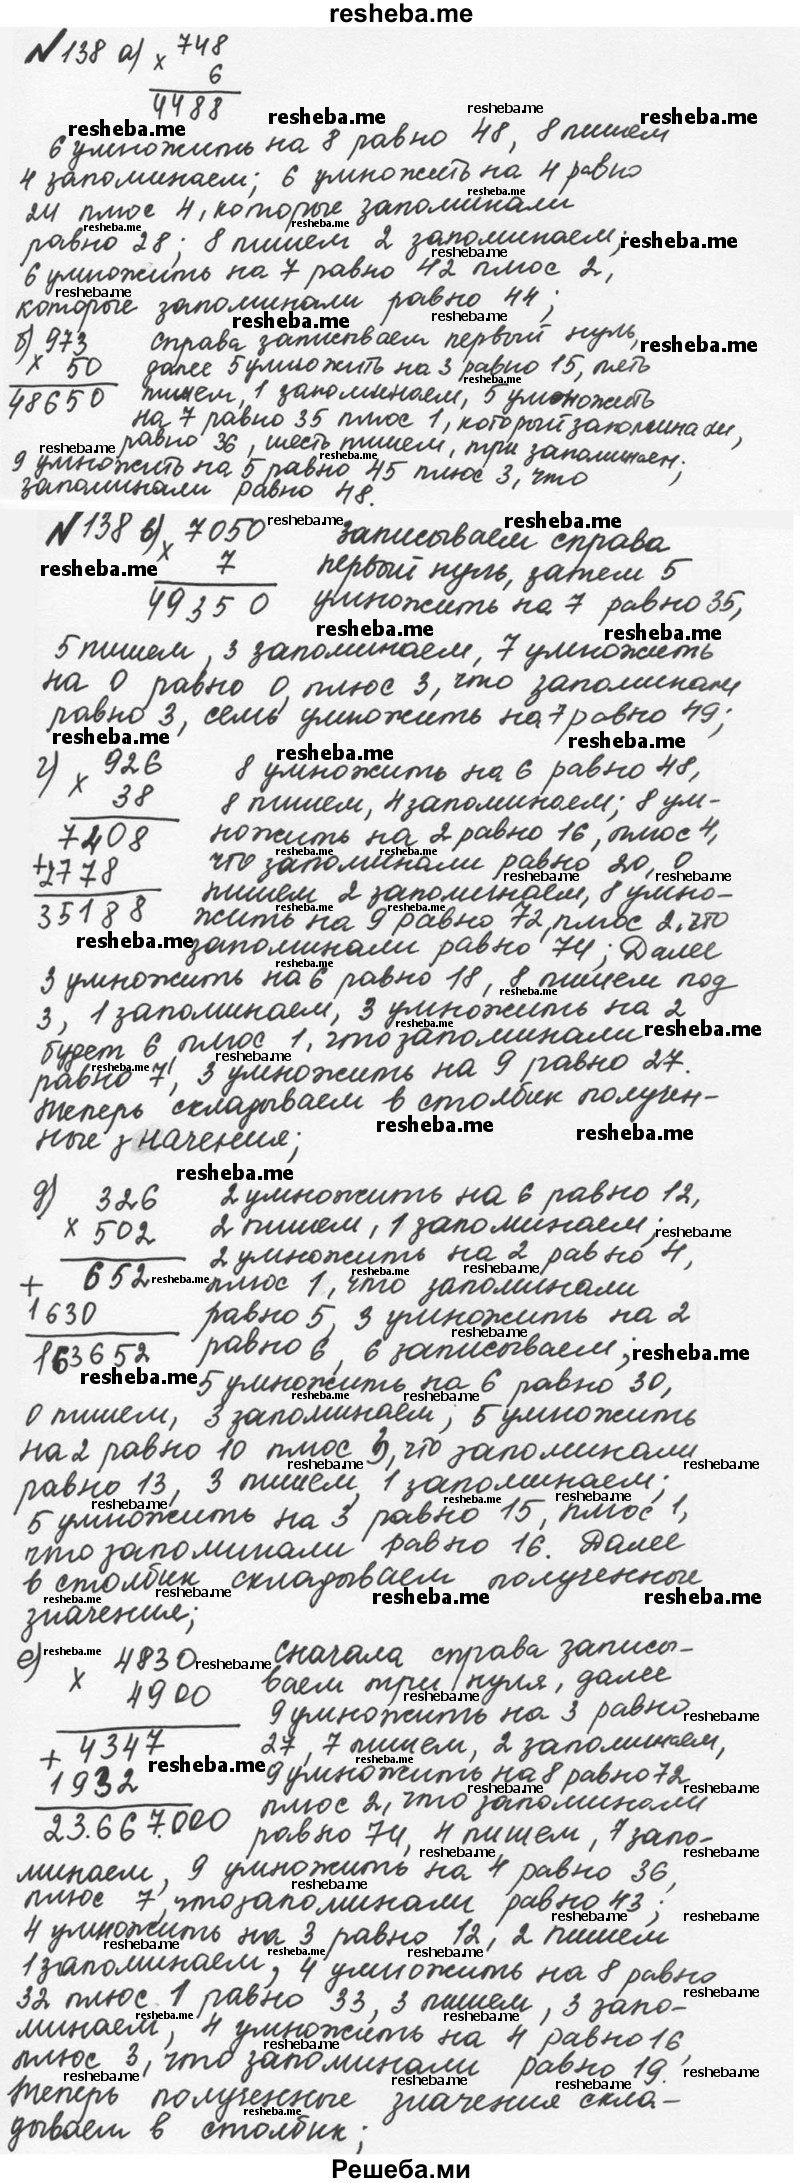 resheba.me
№138 а) × 748
6
4488
6 умножить на 8 равно 48, 8 пишем
4 запоминаем; 6 умножить на 4 равно
24 плюс 4, которые запоминали
равно 28; 8 пишем 2 запоминаем;
6 умножить на 7 равно 42 плюс 2,
которые запоминали равно 44;
б) 973 справа записываем первый нуль,
× 50 далее 5 умножить на 3 равно 15, пять
48650 пишем, 1 запоминаем, 5 умножить
на 7 равно 35 плюс 1, который запоминали,
равно 36, шесть пишем, три запоминаем;
9 умножить на 5 равно 45 плюс 3, что
запоминали равно 48.
№138 в) × 7050 записываем справа
7 первый нуль, затем 5
49350 умножить на 7 равно 35,
5 пишем, 3 запоминаем, 7 умножить
на 0 равно 0, плюс 3, что запоминали
равно 3, семь умножить на 7 равно 49;
г) 926 8 умножить на 6 равно 48,
× 38 8 пишем, 4 запоминаем; 8 ум-
7408 ножить на 2 равно 16, плюс 4,
+ 2778 что запоминали равно 20, 0
35188 пишем 2 запоминаем, 8 умно-
жить на 9 равно 72, плюс 2, что
запоминали равно 74; Далее
3 умножить на 6 равно 18, 8 пишем под
3, 1 запоминаем, 3 умножить на 2
будет 6 плюс 1, что запоминали
равно 7, 3 умножить на 9 равно 27.
Теперь складываем в столбик получен-
ные значения;
д) 326 2 умножить на 6 равно 12,
× 502 2 пишем, 1 запоминаем;
2 умножить на 2 равно 4,
+ 652 плюс 1, что запоминали
1630 равно 5, 3 умножить на 2
163652 равно 6, 6 записываем;
5 умножить на 6 равно 30,
0 пишем, 3 запоминаем; 5 умножить
на 2 равно 10 плюс 3, что запоминали
равно 13, 3 пишем, 1 запоминаем;
5 умножить на 3 равно 15, плюс 1,
что запоминали равно 16. Далее
в столбик складываем полученные
значения;
е) × 4830 Сначала справа записы-
4900 ваем три нуля, далее
9 умножить на 3 равно
+ 4347 27, 7 пишем, 2 запоминаем,
1932 9 умножить на 8 равно 72
23.667.000 плюс 2, что запоминали
равно 74, 4 пишем, 7 запо-
минаем, 9 умножить на 4 равно 36,
плюс 7, что запоминали равно 43;
4 умножить на 3 равно 12, 2 пишем
1 запоминаем, 4 умножить на 8 равно
32 плюс 1 равно 33, 3 пишем, 3 запо-
минаем, 4 умножить на 4 равно 16,
плюс 3, что запоминали равно 19.
Теперь полученные значения скла-
дываем в столбик;
Решеба.ми